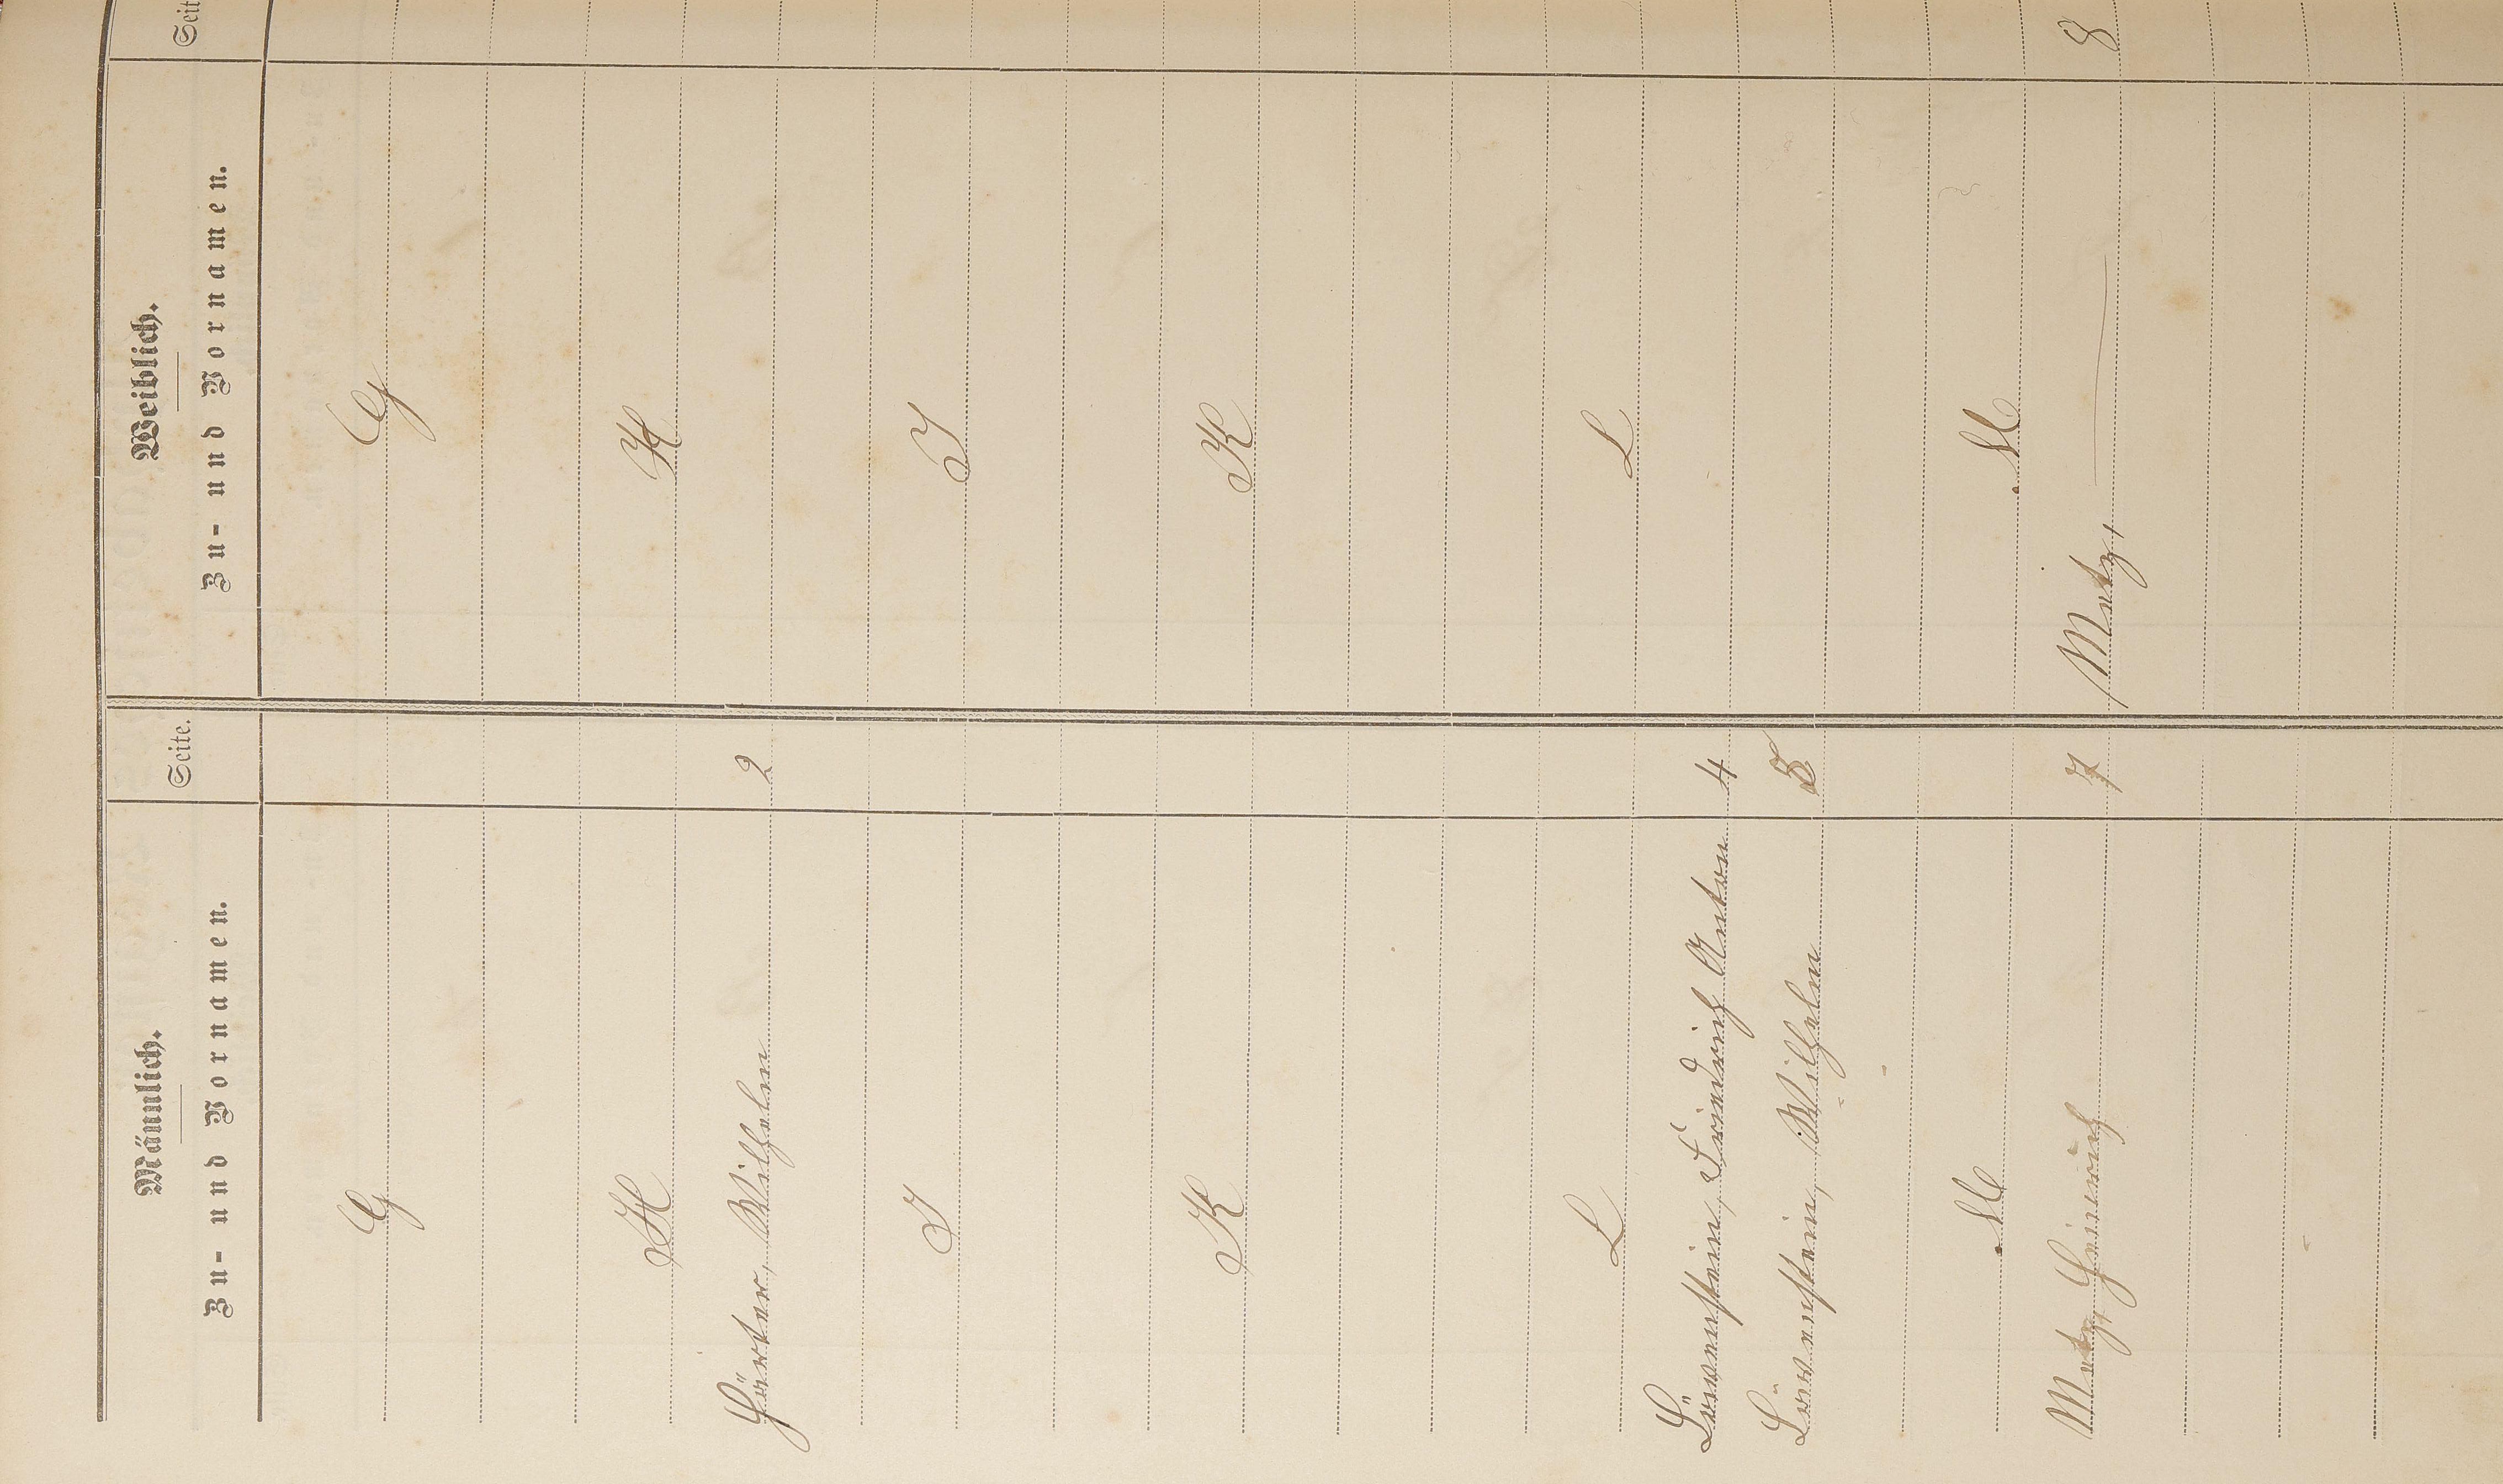 Männlich. Weiblich.
Zu- und Vornamen. Seite. Zu- und Vornamen. Seit
G G
H H
Härter, Wilhelm 2
J J
K K
L L
Löwenstein, Friedrich Anton 4
Löwenstein, Wilhelm 5
M M
Metz, Heinrich 7 Metz, — 8